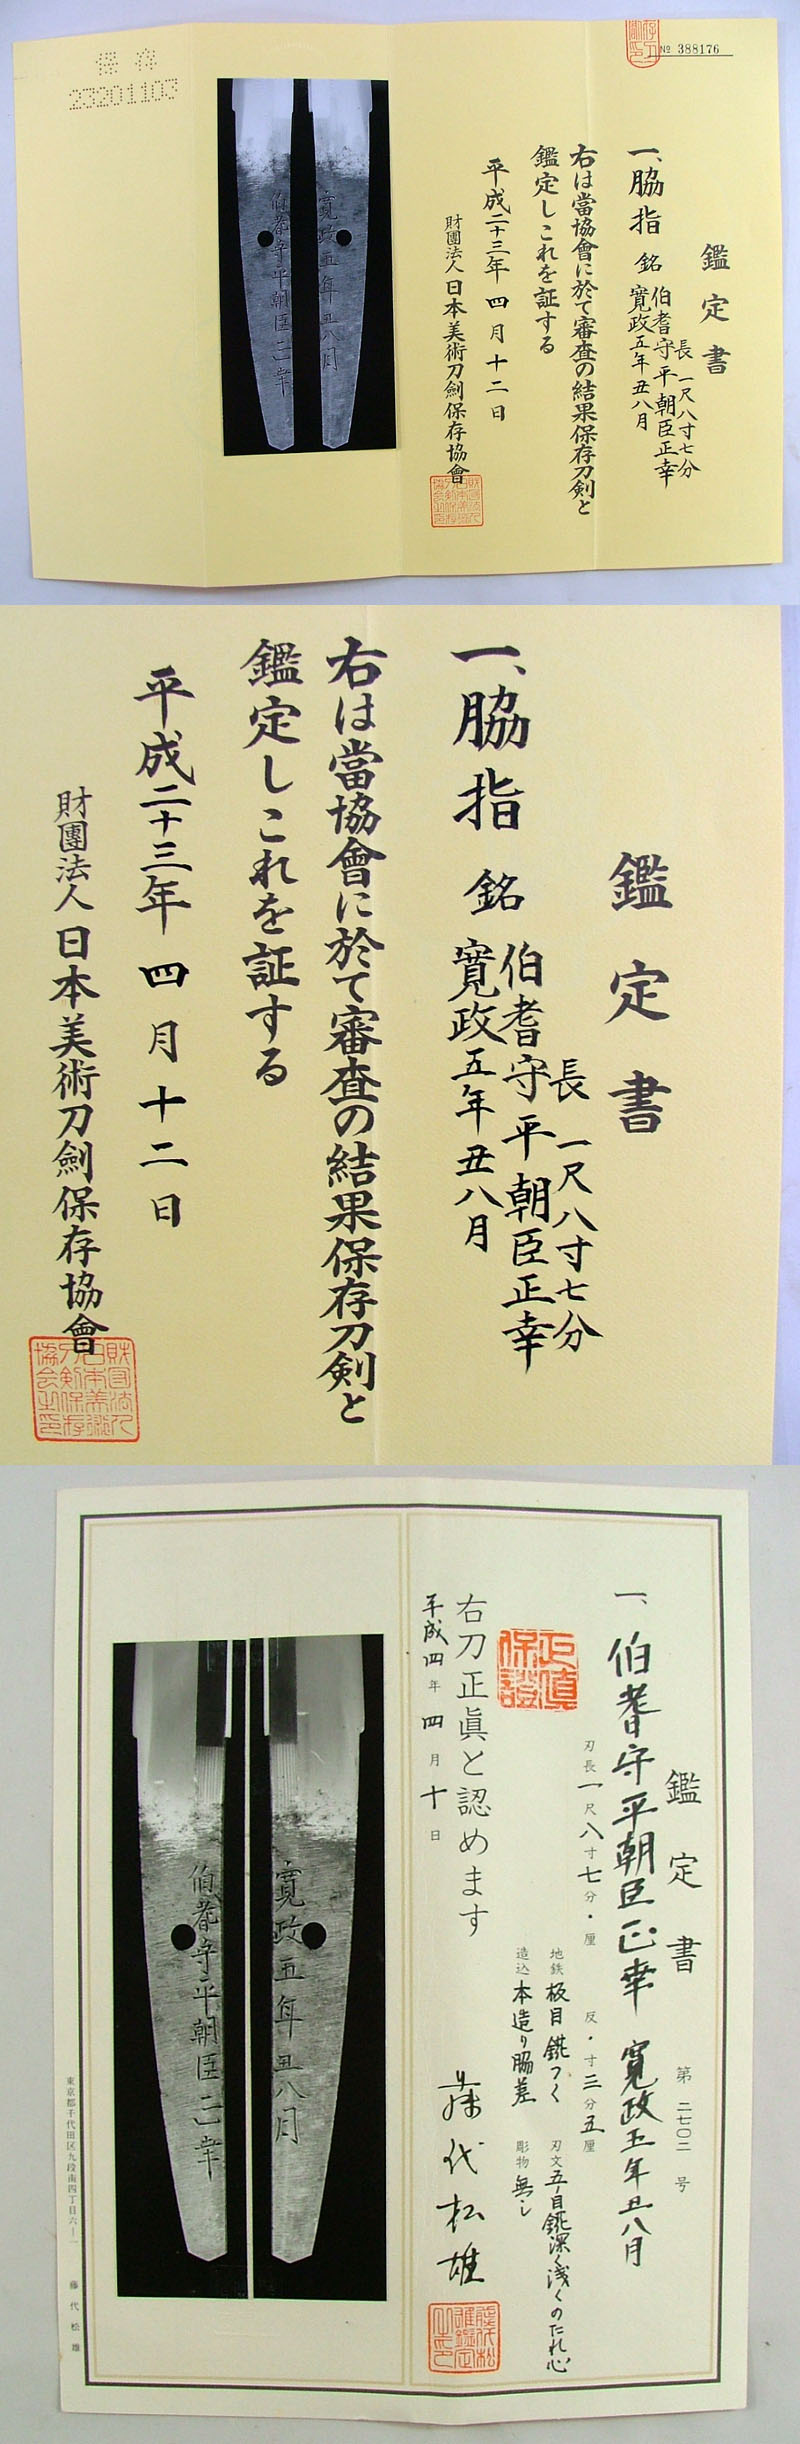 保存
23201103
№ 388176
鑑定書
一、脇指 銘 伯耆守平朝臣正幸
寛政五年丑八月
長 一尺八寸七分
右は當協會に於て審査の結果保存刀剣と
鑑定しこれを証する
平成二十三年四月十二日
財團法人日本美術刀劍保存協會
伯耆守平朝臣正幸
寛政五年丑八月
鑑定書
長 一尺八寸七分
一、脇指 銘 伯耆守平朝臣正幸
寛政五年丑八月
右は當協會に於て審査の結果保存刀剣と
鑑定しこれを証する
平成二十三年四月十二日
財團法人日本美術刀劍保存協會
鑑定書
第二七〇二号
一、伯耆守平朝臣正幸 寛政五年丑八月
刃長一尺八寸七分・厘 反・寸三分五厘
地鉄 板目錵つく 刃文 五ノ目錵深く浅くのたれ心
造込 本造り脇差 彫物 無し
正真保證
右刀正眞と認めます
平成四年四月十日
藤代松雄
伯耆守平朝臣正幸
寛政五年丑八月
東京都千代田区九段南四丁目六ー一 藤代松雄